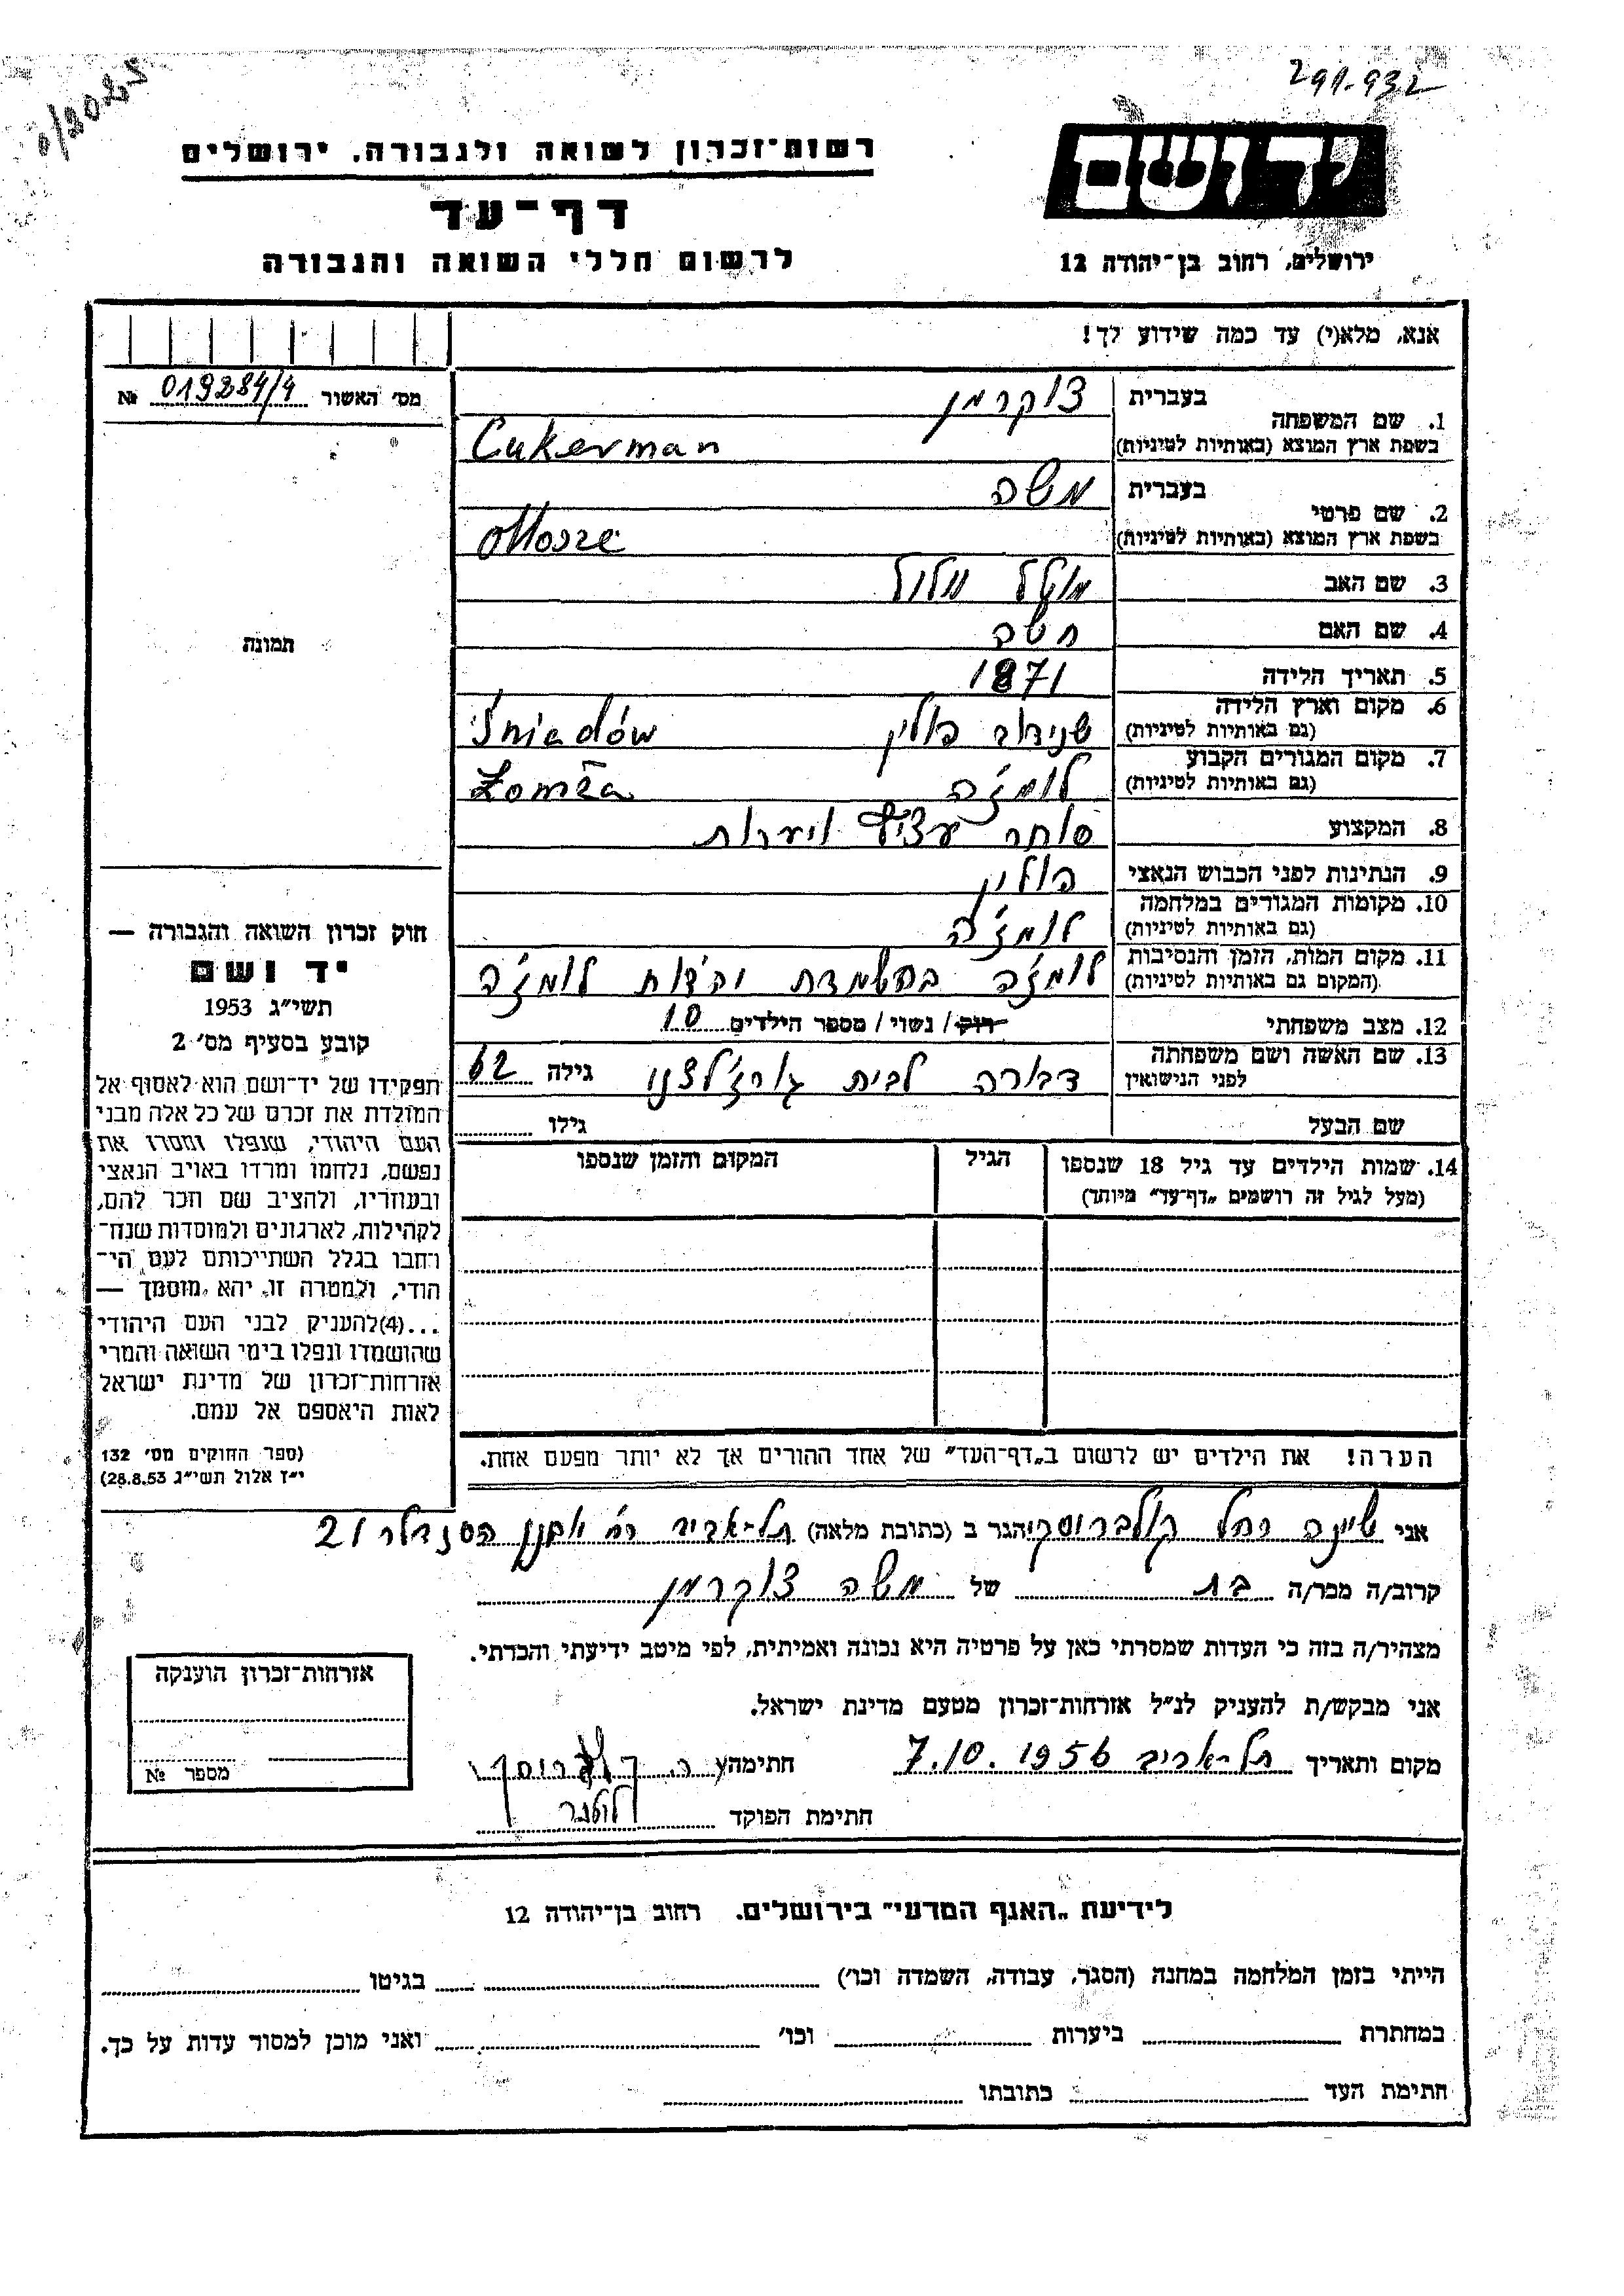 291.932
רשות־זכרון לשואה ולגבורה. ירושלים
דף־עד
לרשום חללי השואה והגבורה
יד ושם
ירושלים, רחוב בן־יהודה 12
אנא, מלא(י) עד כמה שידוע לך!
מס׳ האשור 019284/4 №
תמונה
חוק זכרון השואה והגבורה —
יד ושם
תשי״ג 1953
קובע בסעיף מס׳ 2
תפקידו של יד־ושם הוא לאסוף אל
המולדת את זכרם של כל אלה מבני
העם היהודי, שנפלו ומסרו את
נפשם, נלחמו ומרדו באויב הנאצי
ובעוזריו, ולהציב שם וזכר להם,
לקהילות, לארגונים ולמוסדות שנח־
רחבו בגלל השתייכותם לעם הי־
הודי, ולמטרה זו, יהא מוסמך —
...(4)להעניק לבני העם היהודי
שהושמדו ונפלו בימי השואה והמרי
אזרחות־זכרון של מדינת ישראל
לאות היאספם אל עמם.
(ספר החוקים מס׳ 132
י״ז אלול תשי״ג 28.8.53)
בעברית צוקרמן
1. שם המשפחה
בשפת ארץ המוצא (באותיות לטיניות) Cukerman
בעברית משה
2. שם פרטי
בשפת ארץ המוצא (באותיות לטיניות) Mosze
3. שם האב
4. שם האם
5. תאריך הלידה 1871
6. מקום וארץ הלידה
(גם באותיות לטיניות) שנידוב פולין Śniadów
7. מקום המגורים הקבוע
(גם באותיות לטיניות) לומז׳ה Łomża
8. המקצוע סוחר עצים ויערות
9. הנתינות לפני הכבוש הנאצי פולין
10. מקומות המגורים במלחמה
(גם באותיות לטיניות) לומז׳ה
11. מקום המות, הזמן והנסיבות
(המקום גם באותיות לטיניות) לומז׳ה בהשמדת יהדות לומז׳ה
12. מצב משפחתי רווק / נשוי / מספר הילדים 10
13. שם האשה ושם משפחתה
לפני הנישואין דבורה לבית גילה 62
שם הבעל גילו
14. שמות הילדים עד גיל 18 שנספו הגיל המקום והזמן שנספו
(מעל לגיל זה רושמים „דף־עד״ מיוחד)
הערה! את הילדים יש לרשום ב„דף־העד״ של אחד ההורים אך לא יותר מפעם אחת.
אני שיינה רחל קולברוסקי הגר ב (כתובת מלאה) תל־אביב רח׳ יוחנן הסנדלר 21
קרוב/ה מכר/ה בת של משה צוקרמן
מצהיר/ה בזה כי העדות שמסרתי כאן על פרטיה היא נכונה ואמיתית, לפי מיטב ידיעתי והכרתי.
אני מבקש/ת להעניק לנ״ל אזרחות־זכרון מטעם מדינת ישראל.
מקום ותאריך תל־אביב 7.10.1956 חתימה
חתימת הפוקד
אזרחות־זכרון הוענקה
מספר №
לידיעת „האגף המדעי״ בירושלים. רחוב בן־יהודה 12
הייתי בזמן המלחמה במחנה (הסגר, עבודה, השמדה וכו׳) בגיטו
במחתרת ביערות וכו׳ ואני מוכן למסור עדות על כך.
חתימת העד כתובתו